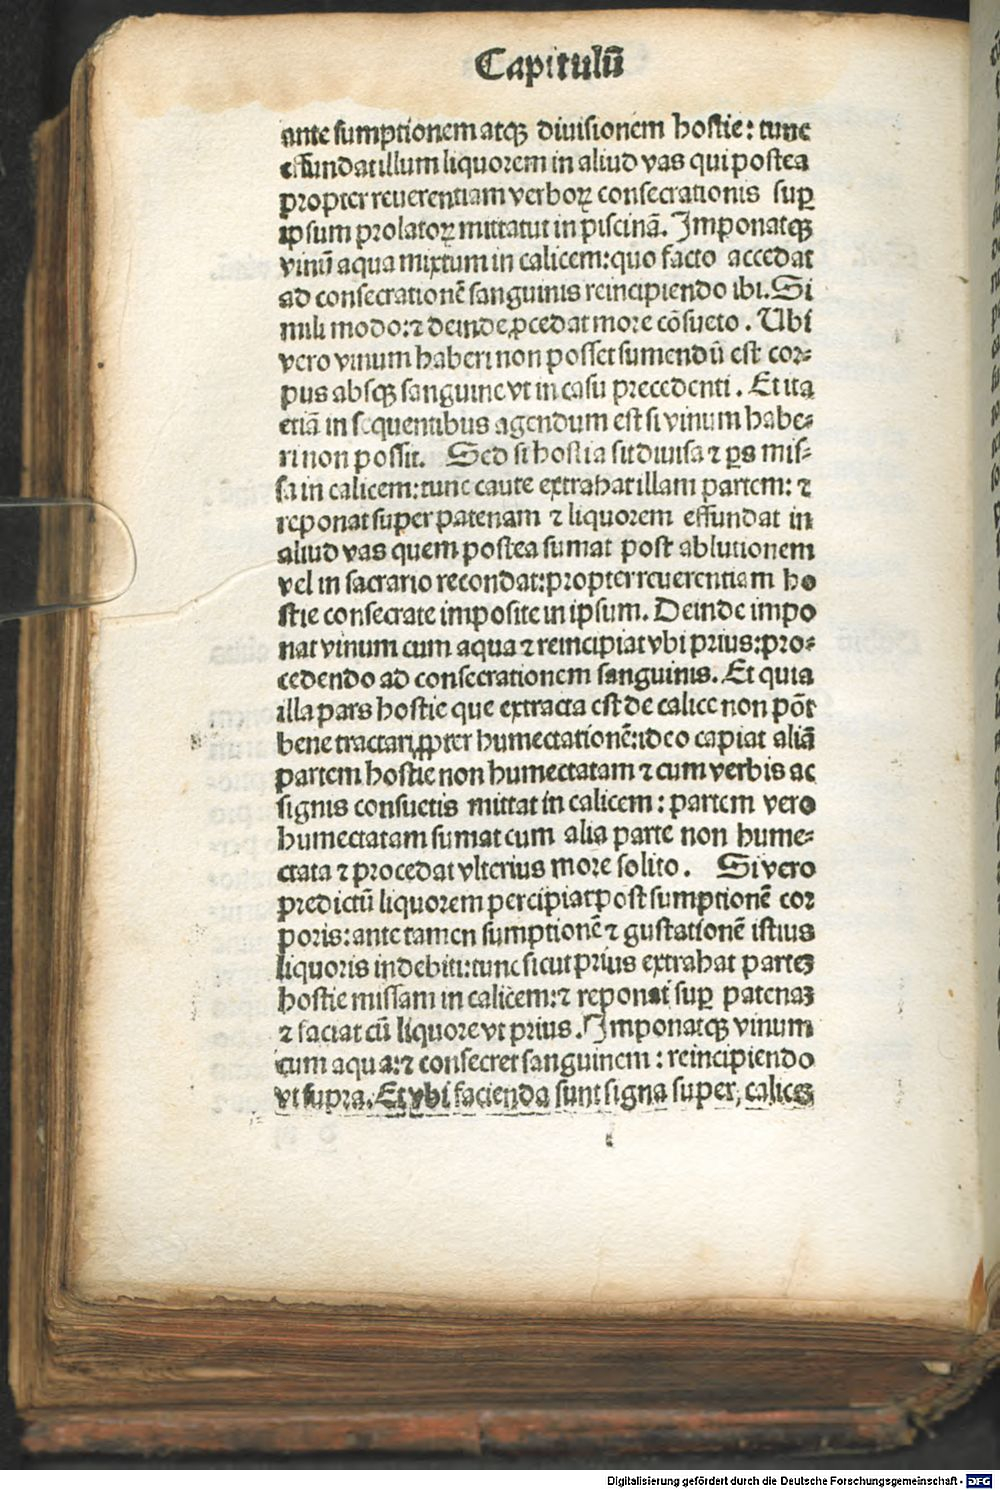 Capitulū
ante sumptionem atqꝫ diuisionem hostie: tunc
effundat illum liquorem in aliud vas qui postea
propter reuerentiam verboꝝ consecrationis suꝑ
ipsum prolatoꝝ mittatut in piscinā. Imponatqꝫ
vinū aqua mixtum in calicem: quo facto accedat
ad consecrationē sanguinis reincipiendo ibi. Si
mili modo: ⁊ deinde ꝓcedat more cōsueto. Ubi
vero vinum haberi non posset sumendū est cor⸗
pus absqꝫ sanguine vt in casu precedenti. Et ita
etiā in sequentibus agendum est si vinum habe⸗
ri non possit. Sed si hostia sit diuisa ⁊ ꝑs mis⸗
sa in calicem: tunc caute extrahat illam partem: ⁊
reponat super patenam ⁊ liquorem effundat in
aliud vas quem postea sumat post ablutionem
vel in sacrario recondat: propter reuerentiam ho
stie consecrate imposite in ipsum. Deinde impo
nat vinum cum aqua ⁊ reincipiat vbi prius: pro⸗
cedendo ad consecrationem sanguinis. Et quia
illa pars hostie que extracta est de calice non pōt
bene tractari ꝓpter humectationē: ideo capiat aliā
partem hostie non humectatam ⁊ cum verbis ac
signis consuetis mittat in calicem: partem vero
humectatam sumat cum alia parte non hume⸗
ctata ⁊ procedat vlterius more solito. Si vero
predictū liquorem percipiat post sumptionē cor
poris: ante tamen sumptionē ⁊ gustationē istius
liquoris indebiti: tunc sicut prius extrahat parteꝫ
hostie missam in calicem: ⁊ reponat suꝑ patenaꝫ
⁊ faciat cū liquore vt prius. Imponatqꝫ vinum
cum aqua: ⁊ consecret sanguinem: reincipiendo
vt supra. Et vbi facienda sunt signa super caliceꝫ
Digitalisierung gefördert durch die Deutsche Forschungsgemeinschaft - DFG